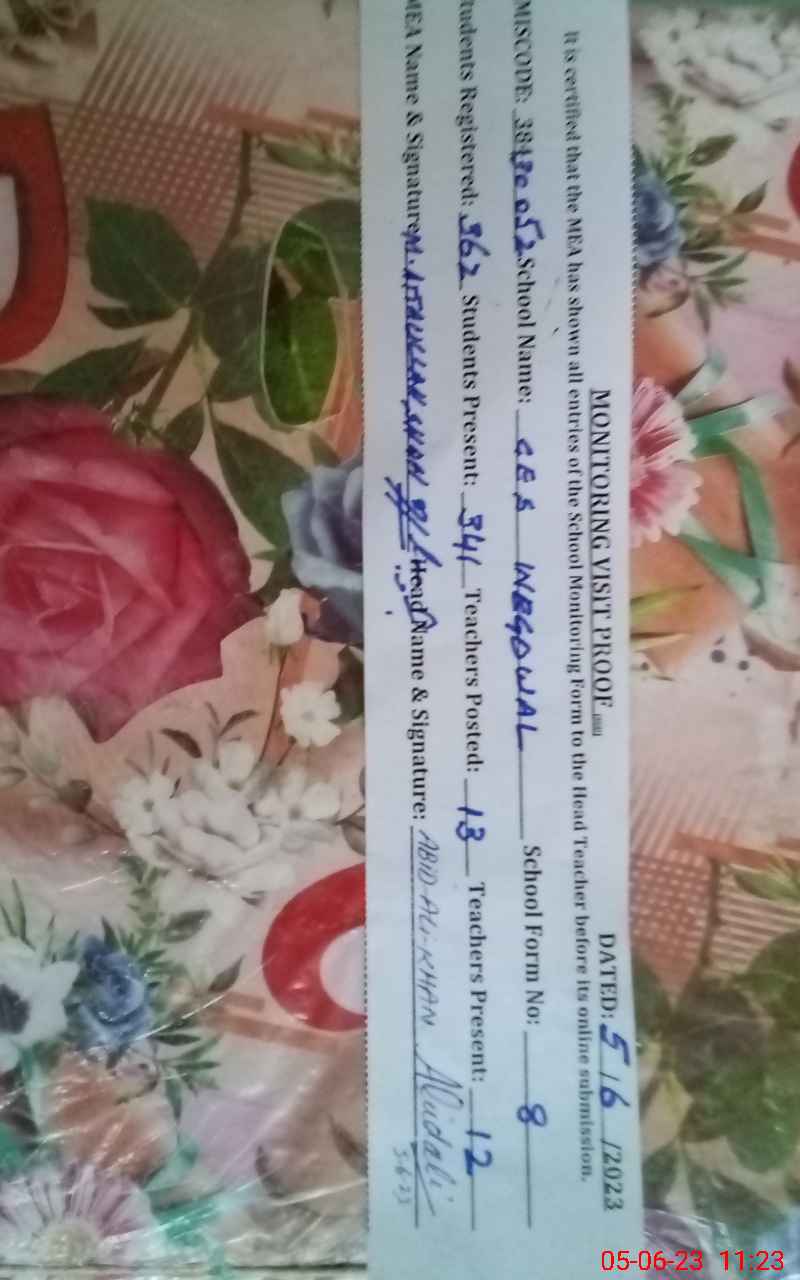 MONITORING VISIT PROOF DATED: 5/6/2023
It is certified that the MEA has shown all entries of the School Monitoring Form to the Head Teacher before its online submission.
MISCODE: 38430052 School Name: GES WEGOWAL School Form No: 8
tudents Registered: 362 Students Present: 341 Teachers Posted: 13 Teachers Present: 12
MEA Name & Signature: Head Name & Signature: ABID-ALI-KHAN Abidali
5-6-23
05-06-23 11:23